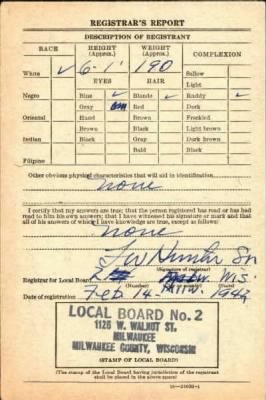 REGISTRAR'S REPORT
DESCRIPTION OF REGISTRANT
RACE HEIGHT (Approx.) WEIGHT (Approx.) COMPLEXION
White ✓ 6-1" 190 Sallow
EYES HAIR Light
Negro Blue ✓ Blonde ✓ Ruddy ✓
Gray Red Dark
Oriental Hazel Brown Freckled
Brown Black Light brown
Indian Black Gray Dark brown
Bald Black
Filipino
Other obvious physical characteristics that will aid in identification
none
I certify that my answers are true; that the person registered has read or has had
read to him his own answers; that I have witnessed his signature or mark and that
all of his answers of which I have knowledge are true, except as follows:
none
(Signature of registrar)
Registrar for Local Board 2 Wis.
(Number) (City or county) (State)
Date of registration Feb 14 - 1942
LOCAL BOARD No. 2
1126 W. WALNUT ST.
MILWAUKEE
MILWAUKEE COUNTY, WISCONSIN
(STAMP OF LOCAL BOARD)
(The stamp of the Local Board having jurisdiction of the registrant
shall be placed in the above space.)